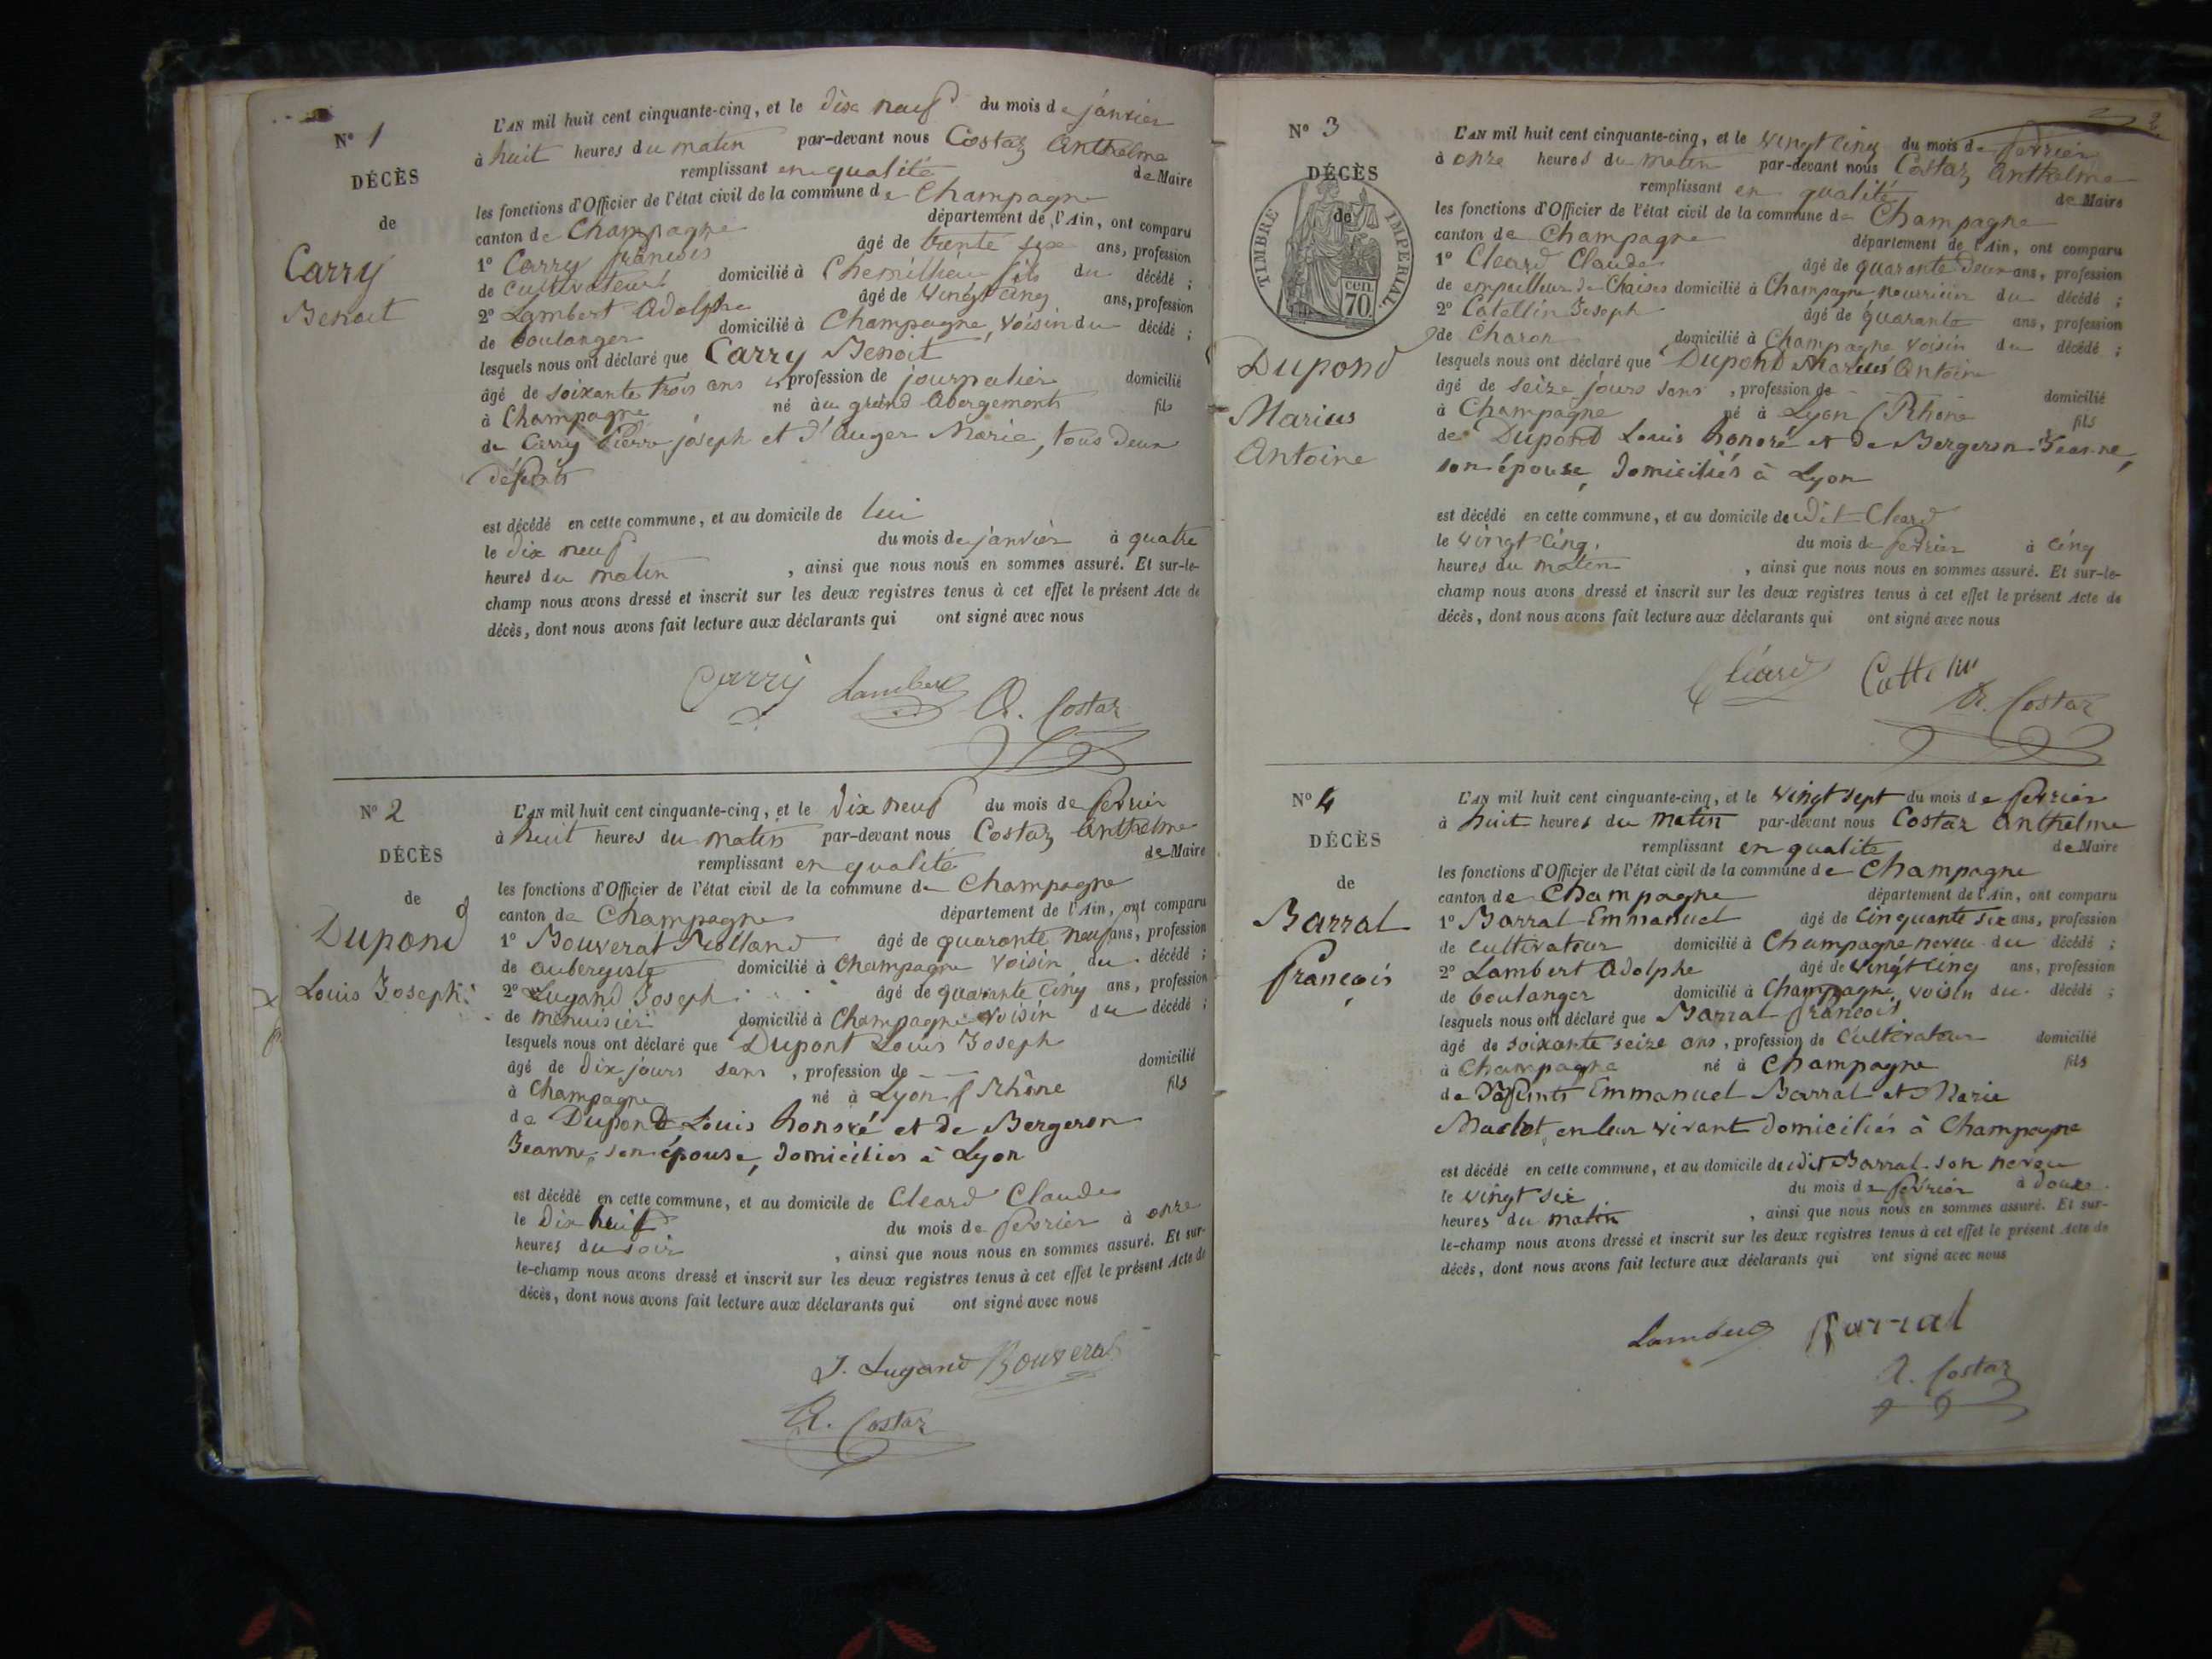 N° 1
DÉCÈS
de
Carry
Benoit
L'AN mil huit cent cinquante-cinq, et le dix neuf du mois de janvier
à huit heures du matin par-devant nous Costaz Anthelme
remplissant en qualité de Maire
les fonctions d'Officier de l'état civil de la commune de Champagne
canton de Champagne département de l'Ain, ont comparu
1° Carry françois âgé de trente six ans, profession
de cultivateur domicilié à Chemillieu fils du décédé ;
2° Lambert Adolphe âgé de vingt cinq ans, profession
de boulanger domicilié à Champagne, voisin du décédé ;
lesquels nous ont déclaré que Carry Benoit
âgé de soixante trois ans profession de journalier domicilié
à Champagne né au grand Abergement fils
de Carry Pierre joseph et d'Auger Marie, tous deux
défunts
est décédé en cette commune, et au domicile de lui
le dix neuf du mois de janvier à quatre
heures du matin , ainsi que nous nous en sommes assuré. Et sur-le-
champ nous avons dressé et inscrit sur les deux registres tenus à cet effet le présent Acte de
décès, dont nous avons fait lecture aux déclarants qui ont signé avec nous
Carry Lambert A. Costaz
N° 2
DÉCÈS
de
Dupond
Louis Joseph
L'AN mil huit cent cinquante-cinq, et le dix neuf du mois de fevrier
à huit heures du matin par-devant nous Costaz Anthelme
remplissant en qualité de Maire
les fonctions d'Officier de l'état civil de la commune de Champagne
canton de Champagne département de l'Ain, ont comparu
1° Bouverat âgé de quarante neuf ans, profession
de aubergiste domicilié à Champagne voisin du décédé ;
2° Lugand Joseph âgé de quarante cinq ans, profession
de menuisier domicilié à Champagne voisin du décédé ;
lesquels nous ont déclaré que Dupont Louis Joseph
âgé de dix jours sans , profession de domicilié
à Champagne né à Lyon ( Rhône fils
de Dupond Louis honoré et de Bergeron
Jeanne, son épouse, domiciliés à Lyon
est décédé en cette commune, et au domicile de Cleard Claude
le dix huit du mois de fevrier à onze
heures du soir , ainsi que nous nous en sommes assuré. Et sur-
le-champ nous avons dressé et inscrit sur les deux registres tenus à cet effet le présent Acte de
décès, dont nous avons fait lecture aux déclarants qui ont signé avec nous
J. Lugand Bouverat
A. Costaz
N° 3
DÉCÈS
de
TIMBRE IMPERIAL
70 cen
Dupond
Marius
Antoine
L'AN mil huit cent cinquante-cinq, et le vingt cinq du mois de fevrier
à onze heures du matin par-devant nous Costaz Anthelme
remplissant en qualité de Maire
les fonctions d'Officier de l'état civil de la commune de Champagne
canton de Champagne département de l'Ain, ont comparu
1° Cleard Claude âgé de quarante deux ans, profession
de empailleur de Chaises domicilié à Champagne nourricier du décédé ;
2° Catellin Joseph âgé de quarante ans, profession
de Charon domicilié à Champagne voisin du décédé ;
lesquels nous ont déclaré que Dupond Marius Antoine
âgé de seize jours sans , profession de domicilié
à Champagne né à Lyon ( Rhône fils
de Dupond Louis honoré et de Bergeron Jeanne,
son épouse, domiciliés à Lyon
est décédé en cette commune, et au domicile dudit Cleard
le vingt cinq du mois de fevrier à cinq
heures du matin , ainsi que nous nous en sommes assuré. Et sur-le-
champ nous avons dressé et inscrit sur les deux registres tenus à cet effet le présent Acte de
décès, dont nous avons fait lecture aux déclarants qui ont signé avec nous
Cléard A. Costaz
N° 4
DÉCÈS
de
Barral
françois
L'AN mil huit cent cinquante-cinq, et le vingt sept du mois de fevrier
à huit heures du matin par-devant nous Costaz Anthelme
remplissant en qualité de Maire
les fonctions d'Officier de l'état civil de la commune de Champagne
canton de Champagne département de l'Ain, ont comparu
1° Barral Emmanuel âgé de cinquante six ans, profession
de cultivateur domicilié à Champagne neveu du décédé ;
2° Lambert Adolphe âgé de vingt cinq ans, profession
de boulanger domicilié à Champagne, voisin du décédé ;
lesquels nous ont déclaré que Barral françois
âgé de soixante seize ans, profession de Cultivateur domicilié
à Champagne né à Champagne fils
de défunts Emmanuel Barral et Marie
en leur vivant domiciliés à Champagne
est décédé en cette commune, et au domicile dudit Barral son neveu
le vingt six du mois de fevrier à douze
heures du matin , ainsi que nous nous en sommes assuré. Et sur-
le-champ nous avons dressé et inscrit sur les deux registres tenus à cet effet le présent Acte de
décès, dont nous avons fait lecture aux déclarants qui ont signé avec nous
Lambert Barral
A. Costaz